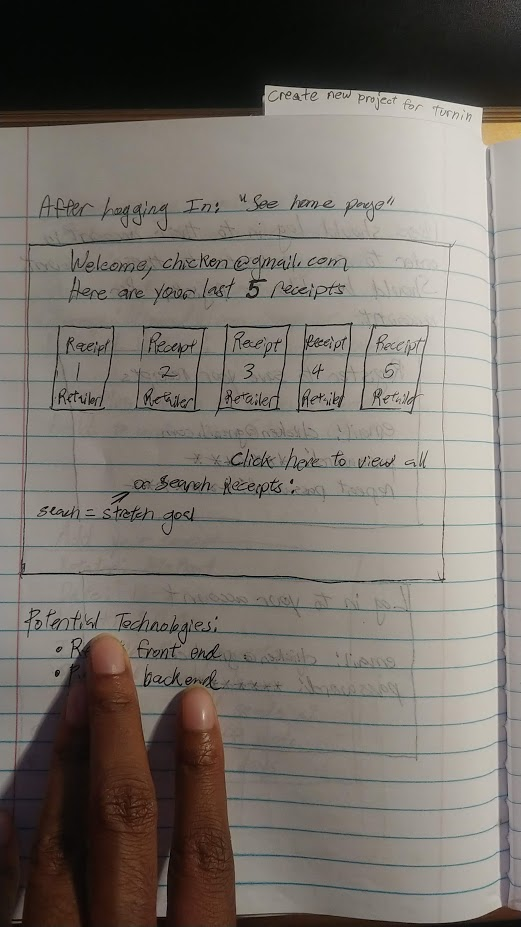 Create new project for turnin
After Logging In: "See home page"
Welcome, chicken@gmail.com
Here are your last 5 receipts
Receipt 1 Retailer
Receipt 2 Retailer
Receipt 3 Retailer
Receipt 4 Retailer
Receipt 5 Retailer
Click here to view all
or Search Receipts:
seach = stretch goal
Potential Technologies:
• front end
• backend